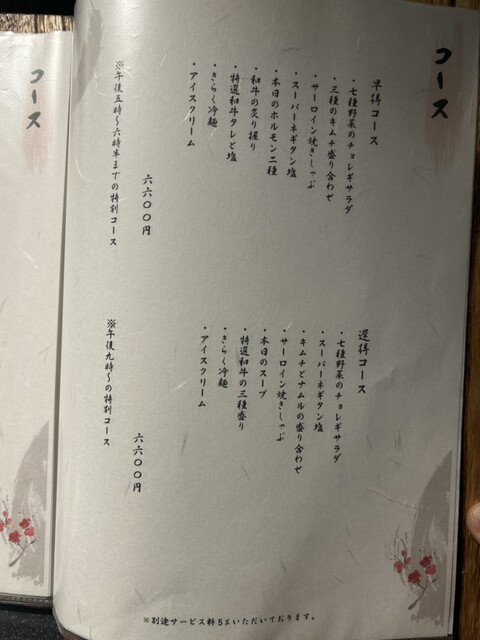 コース
早得コース
・七種野菜のチョレギサラダ
・三種のキムチ盛り合わせ
・サーロイン焼きしゃぶ
・スーパーネギタン塩
・本日のホルモン二種
・和牛の炙り握り
・特選和牛タレと塩
・きらく冷麺
・アイスクリーム
六六〇〇円
※午後五時～六時半までの特別コース
遅得コース
・七種野菜のチョレギサラダ
・スーパーネギタン塩
・キムチとナムルの盛り合わせ
・サーロイン焼きしゃぶ
・本日のスープ
・特選和牛の三種盛り
・きらく冷麺
・アイスクリーム
六六〇〇円
※午後九時～の特別コース
※別途サービス料5%いただいております。
コース